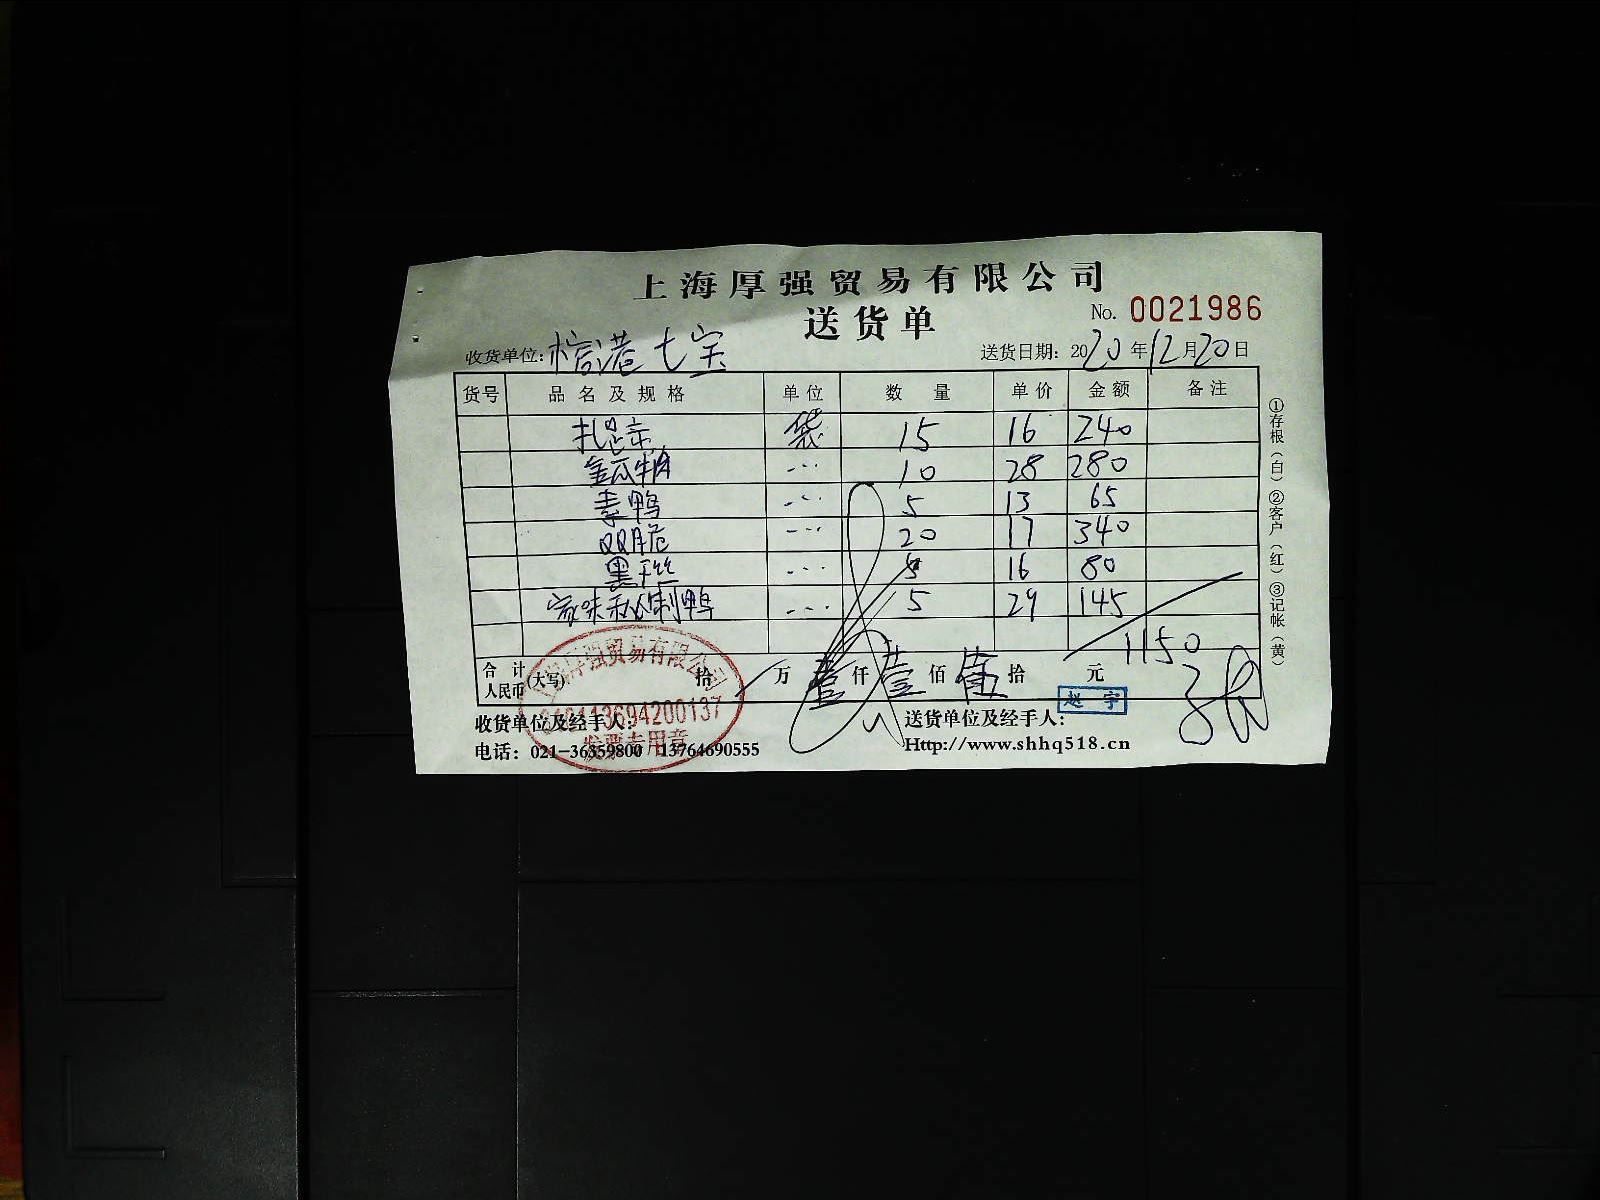 上海厚强贸易有限公司
送货单
No. 0021986
收货单位: 七宝
送货日期: 2020年12月20日
货号 品名及规格 单位 数量 单价 金额 备注
扎昆京 袋 15 16 240
金瓜牛柳 --- 10 28 280
素鸭 --- 5 13 65
QQ脆 --- 20 17 340
黑干丝 --- 5 16 80
家味私制鸭 --- 5 29 145
1150
合计人民币(大写) 拾 万 壹仟 壹佰 伍拾 元
收货单位及经手人:
送货单位及经手人:
赵宇
电话: 021-36359800 13764690555
Http://www.shhq518.cn
①存根(白)②客户(红)③记帐(黄)
厚强贸易有限公司
发票专用章